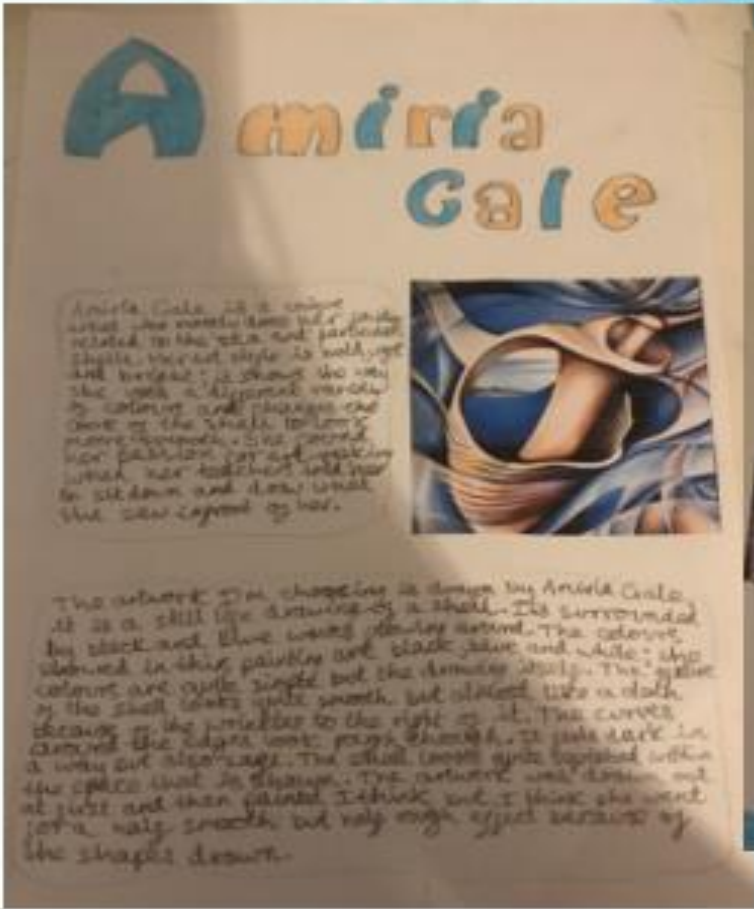 Amiria
Gale
Amiria Gale is a unique
artist who mostly does her
related to the sea and particular
shells. Her art style is
and; it shows the way
she uses a different variety
of colours and changes the
of the shell to look
more. She
her passion for art
when her teachers told her
to sit down and draw what
she saw infront of her.
The artwork I'm choosing is drawn by Amiria Gale,
it is a still life drawing of a shell. Its surrounded
by black and blue waves flowing around. The colours
showed in this painting are black, blue and white; the
colours are quite simple but the drawing itself. The
of the shell looks quite smooth but almost like a cloth
because of the wrinkles to the right of it. The curves
around the edges look though. It looks dark in
a way but also. The shell looks quite within
the space that is shown. The artwork was drawn out
at first and then painted I think but I think she went
for a half smooth but half rough effect because of
the shapes drawn.